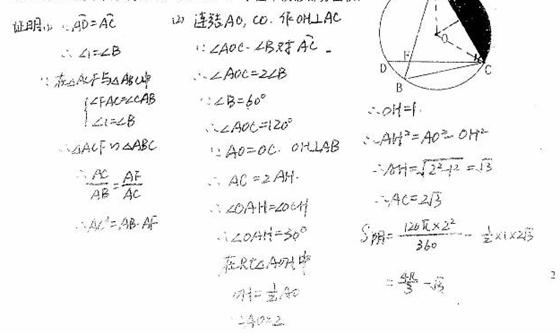 证明:(1) ∵ AD=AC
∴ ∠1=∠B
∵ 在△ACF与△ABC中
{ ∠FAC=∠CAB
∠1=∠B
∴ △ACF∽△ABC
∴ AC/AB=AF/AC
∴ AC²=AB·AF
(2) 连结AO, CO. 作OH⊥AC
∵ ∠AOC、∠B对AC.
∴ ∠AOC=2∠B
∵ ∠B=60°
∴ ∠AOC=120°
∵ AO=OC. OH⊥AB
∴ AC=2AH.
∴ ∠OAH=∠OCH
∴ ∠OAH=30°
在Rt△AOH中
OH=½AO
∵ AO=2
D
F
B
O
C
∴ OH=1.
∴ AH²=AO²-OH²
∴ AH=√2²-1²=√3
∴ AC=2√3
S阴=120π×2²/360 - ½×1×2√3
=4π/3-√3
2